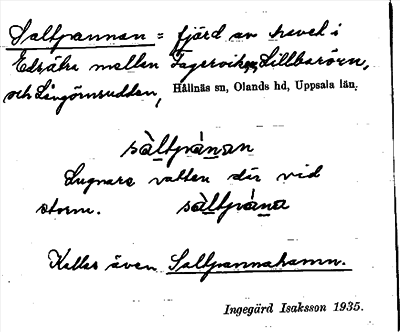 Saltpannan = fjärd av havet i
Edsätra mellan Fagerviken, Lillbarörn,
och Långörnsudden, Hållnäs sn, Olands hd, Uppsala län.
sàltpánan
Lugnare vatten där vid
storm. sàltpána
Kallas även Saltpannahamn.
Ingegärd Isaksson 1935.